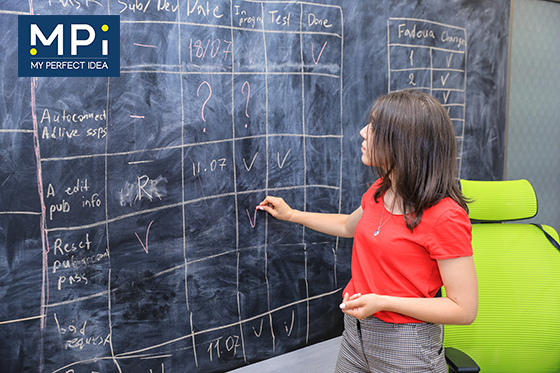 MPi
MY PERFECT IDEA
Sub/Dev Date In progress Test Done
18/07 ✓
? ?
Autoconnect
Adlive ssps
11.07 ✓ ✓
A edit
pub info
✓
Reset
pass
✓
request
11.07 ✓ ✓
Fadoua Changes
1 ✓
2 ✓
✓